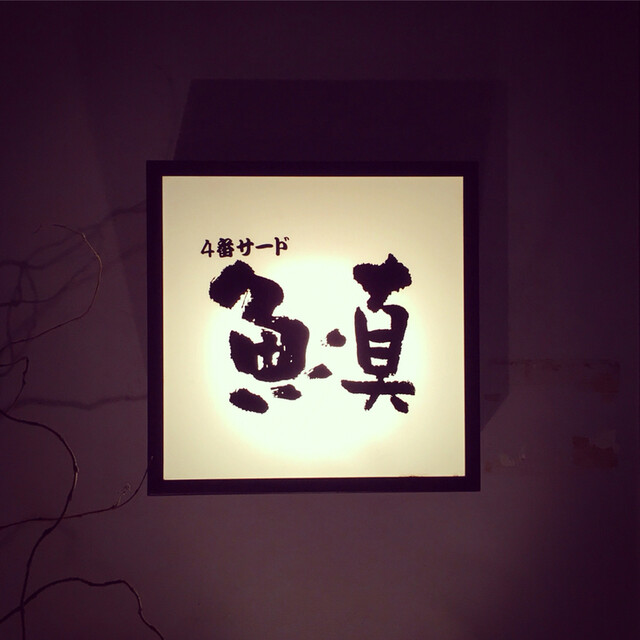 4番サード
魚真